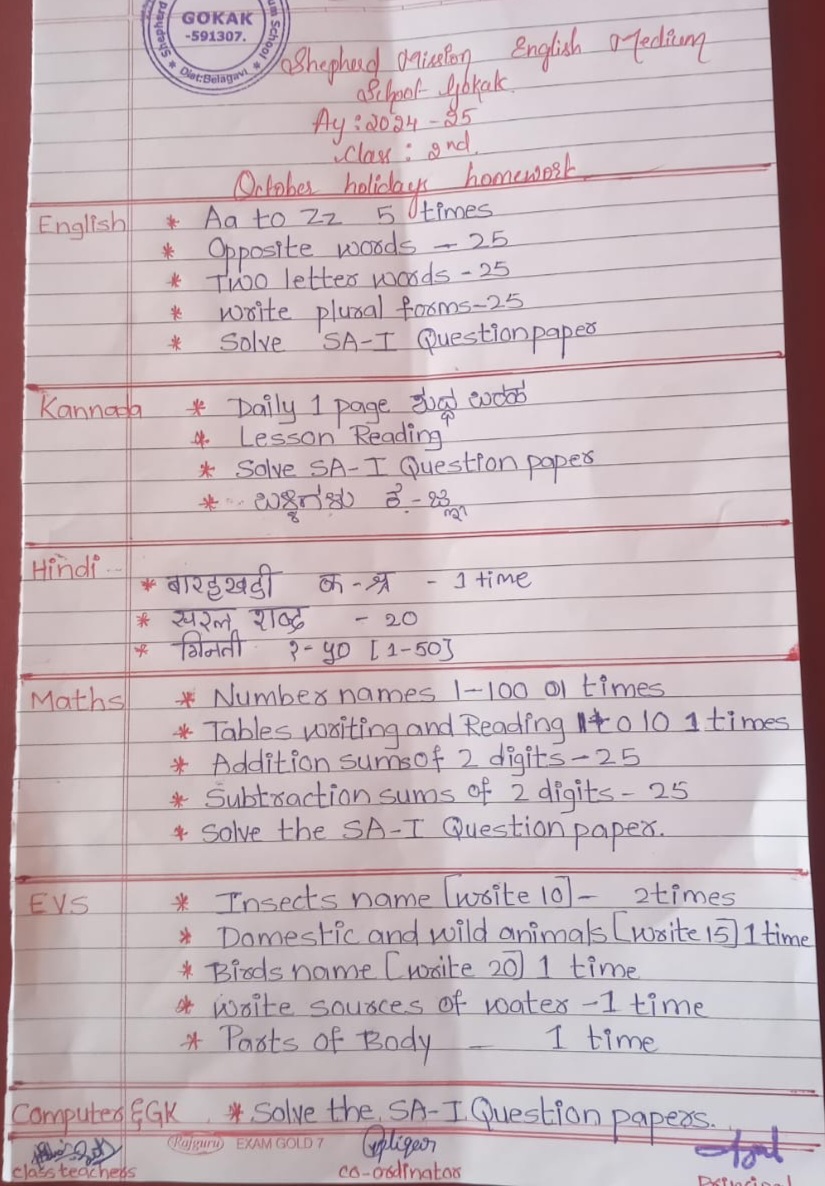 GOKAK
-591307.
Shepherd um School
Dist:Belagavi
Shepherd Mission English Medium
School Gokak.
Ay : 2024 - 25
Class : 2nd.
October holidays homework
English * Aa to Zz 5 times
* Opposite words - 25
* Two letter words - 25
* write plural forms - 25
* Solve SA-I Question paper
Kannada * Daily 1 page ಶುದ್ಧ ಬರಹ
* Lesson Reading
* Solve SA-I Question paper
*
Hindi
* बारहखडी क - श्र - 1 time
* सरल शब्द - 20
* गिनती १ - ५० [1-50]
Maths * Number names 1-100 01 times
* Tables writing and Reading 1 to 10 1 times
* Addition sums of 2 digits - 25
* Subtraction sums of 2 digits - 25
* Solve the SA-I Question paper.
EVS * Insects name [write 10] - 2 times
* Domestic and wild animals [write 15] 1 time
* Birds name [write 20] 1 time
* write sources of water - 1 time
* Parts of Body - 1 time
Computer & GK * Solve the SA-I Question papers.
Rajguru EXAM GOLD 7
class teachers co-ordinator Principal